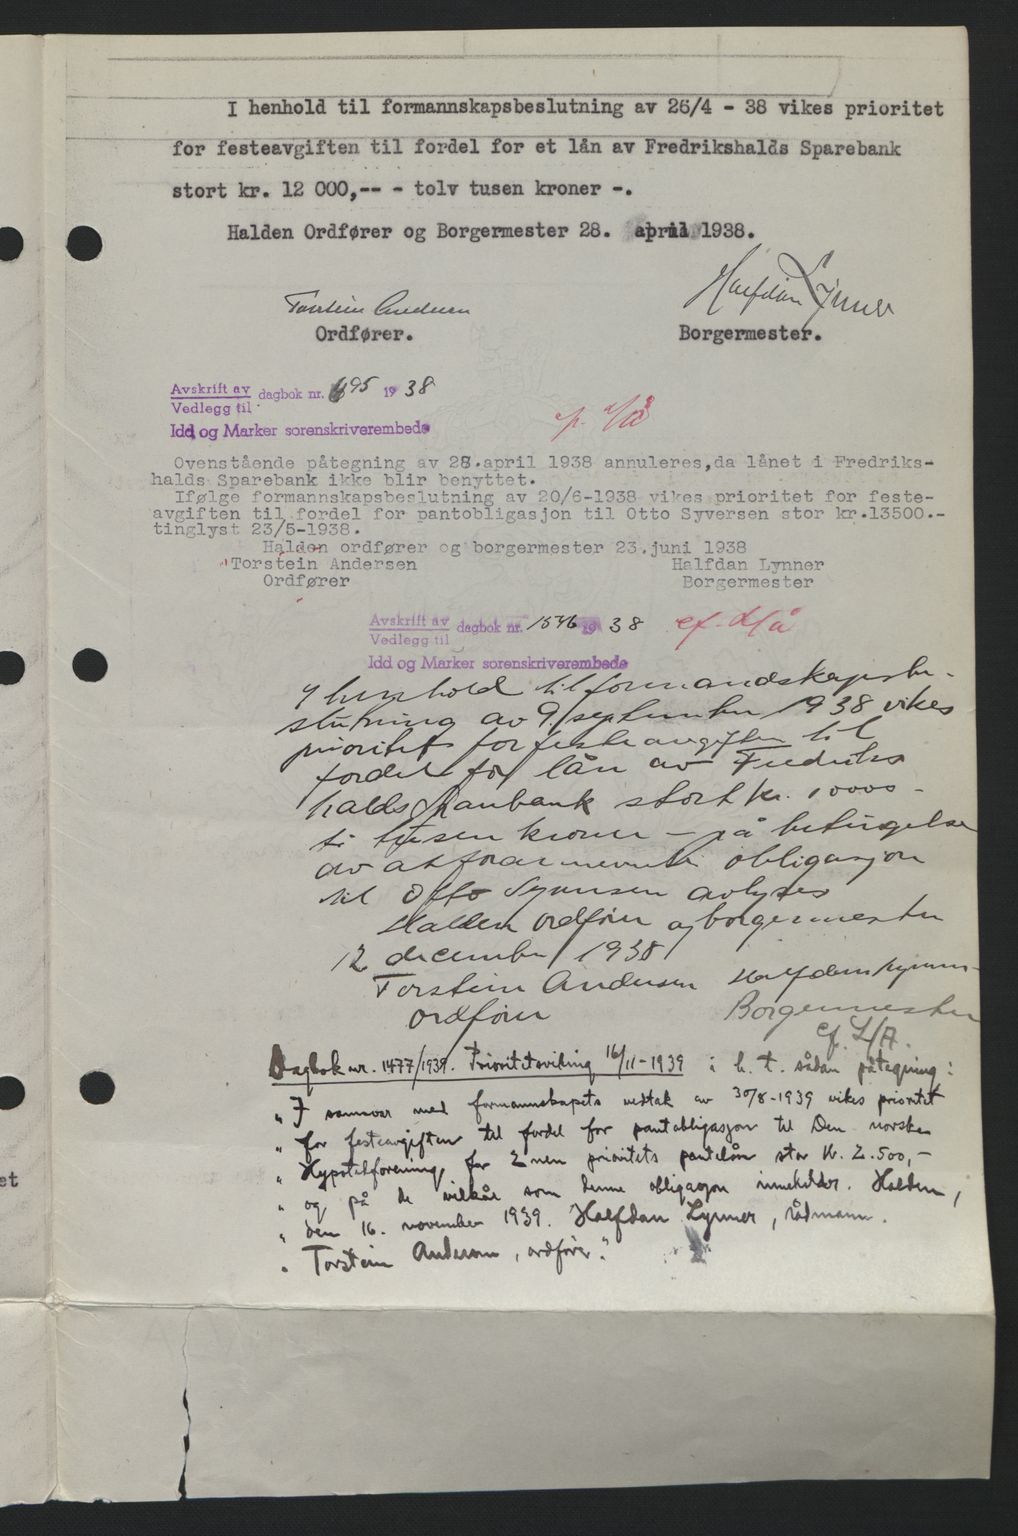 I henhold til formannskapsbeslutning av 26/4 - 38 vikes prioritet
for festeavgiften til fordel for et lån av Fredrikshalds Sparebank
stort kr. 12 000,-- - tolv tusen kroner -.
Halden Ordfører og Borgermester 28. april 1938.
Torstein Andersen Halfdan Lynner
Ordfører. Borgermester.
Avskrift av
Vedlegg til dagbok nr. 695 1938
Idd og Marker sorenskriverembede
Ovenstående påtegning av 28.april 1938 annuleres,da lånet i Fredriks-
halds Sparebank ikke blir benyttet.
Ifølge formannskapsbeslutning av 20/6-1938 vikes prioritet for feste-
avgiften til fordel for pantobligasjon til Otto Syversen stor kr.13500.-
tinglyst 23/5-1938.
Halden ordfører og borgermester 23.juni 1938
Torstein Andersen Halfdan Lynner
Ordfører Borgermester
Avskrift av
Vedlegg til dagbok nr. 1536 1938
Idd og Marker sorenskriverembede
I henhold til formandskapsbe-
slutning av 9. september 1938 vikes
prioritet for festeavgiften til
fordel for lån av Fredriks
halds Sparebank stort kr. 10000 -
ti tusen kroner - på betingelse
av at foran nevnte obligasjon
til Otto Syversen avlyses
Halden ordfører og borgermester
12 december 1938
Torstein Andersen Halfdan Lynner
ordfører Borgermester
Dagbok nr. 1477/1939. Prioritetsvikning 16/11-1939 i h. t. sådan påtegning:
"I samsvar med formannskapets vedtak av 30/8-1939 vikes prioritet
" for festeavgiften til fordel for pantobligasjon til Den norske
" Hypotekforening, for 2nen prioritets pantelån stor kr. 2.500,-
" og på de vilkår som denne obligasjon inneholder. Halden,
" den 16. november 1939. Halfdan Lynner, rådmann.
" Torstein Andersen, ordfører."
et